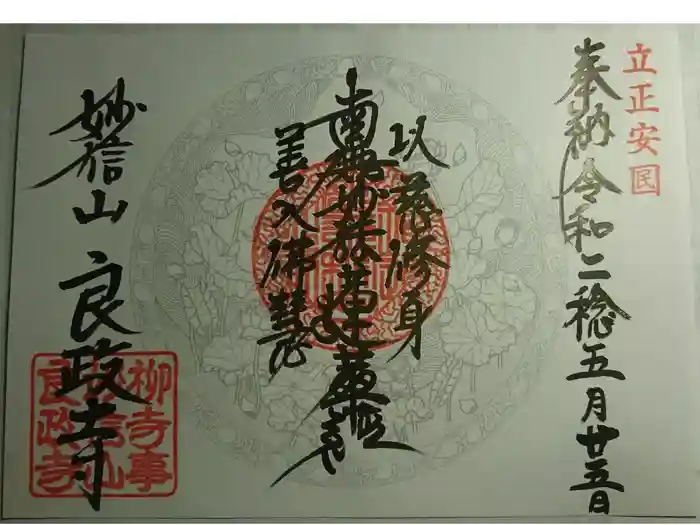 立正安民
奉納 令和二稔五月廿五日
以慈修身
南無妙法蓮華經
善入佛慧
妙信山 良政寺
柳寺事
妙信山
良政寺